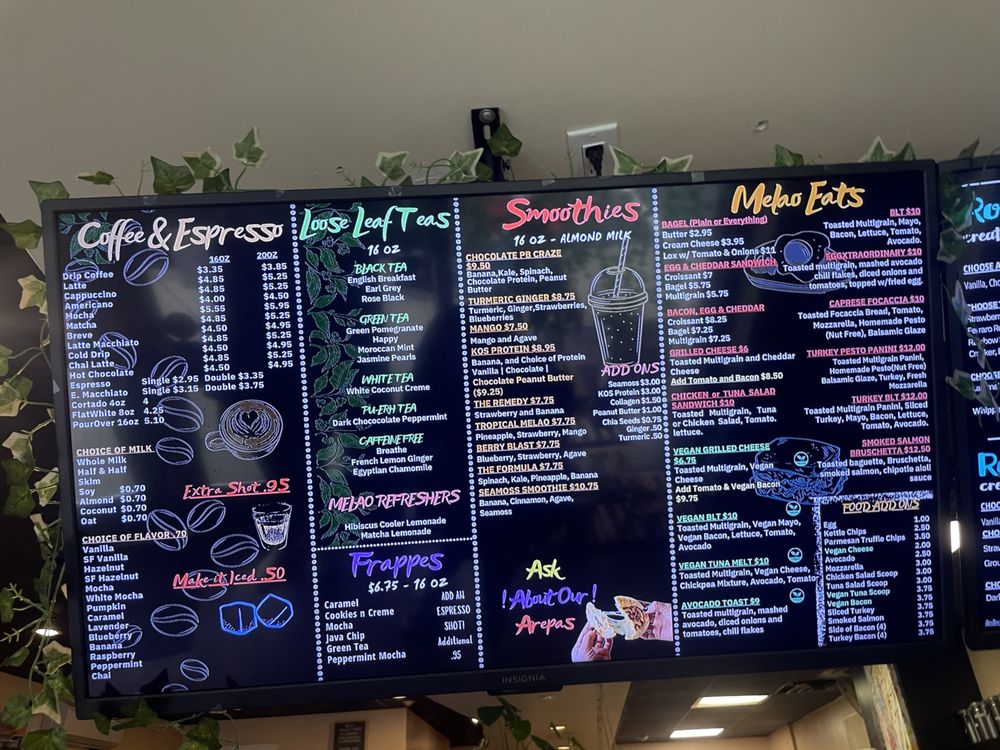 Coffee & Espresso
16OZ 20OZ
Drip Coffee $3.35 $3.85
Latte $4.85 $5.25
Cappuccino $4.85 $5.25
Americano $4.00 $4.50
Mocha $5.55 $5.95
Matcha $4.85 $5.25
Breve $4.85 $5.25
Latte Macchiato $4.50 $4.95
Cold Drip $4.50 $4.95
Chai Latte $4.85 $5.25
Hot Chocolate $4.50 $4.95
Espresso Single $2.95 Double $3.35
E. Macchiato Single $3.15 Double $3.75
Cortado 4oz
FlatWhite 8oz 4.25
PourOver 16oz 5.10
CHOICE OF MILK
Whole Milk
Half & Half
Skim
Soy $0.70
Almond $0.70
Coconut $0.70
Oat $0.70
Extra Shot .95
CHOICE OF FLAVOR .70
Vanilla
SF Vanilla
Hazelnut
SF Hazelnut
Mocha
White Mocha
Pumpkin
Caramel
Lavender
Blueberry
Banana
Raspberry
Peppermint
Chai
Make it Iced .50
Loose Leaf Teas
16 OZ
BLACK TEA
English Breakfast
Earl Grey
Rose Black
GREEN TEA
Green Pomegranate
Happy
Moroccan Mint
Jasmine Pearls
WHITE TEA
White Coconut Creme
PU-ERH TEA
Dark Chococolate Peppermint
CAFFEINE FREE
Breathe
French Lemon Ginger
Egyptian Chamomile
MELAO REFRESHERS
Hibiscus Cooler Lemonade
Matcha Lemonade
Frappes
$6.75 - 16 OZ
Caramel
Cookies n Creme
Mocha
Java Chip
Green Tea
Peppermint Mocha
ADD AN
ESPRESSO
SHOT!
Additional
.95
Smoothies
16 OZ - ALMOND MILK
CHOCOLATE PB CRAZE
$9.50
Banana,Kale, Spinach,
Chocolate Protein, Peanut
Butter
TURMERIC GINGER $8.75
Turmeric, Ginger,Strawberries,
Blueberries
MANGO $7.50
Mango and Agave
KOS PROTEIN $8.95
Banana, and Choice of Protein
Vanilla | Chocolate |
Chocolate Peanut Butter
($9.25)
THE REMEDY $7.75
Strawberry and Banana
TROPICAL MELAO $7.75
Pineapple, Strawberry, Mango
BERRY BLAST $7.75
Blueberry, Strawberry, Agave
THE FORMULA $7.75
Spinach, Kale, Pineapple, Banana
SEAMOSS SMOOTHIE $10.75
Banana, Cinnamon, Agave,
Seamoss
ADD ONS
Seamoss $3.00
KOS Protein $3.00
Collagen $1.50
Peanut Butter $1.00
Chia Seeds $0.75
Ginger .50
Turmeric .50
Ask
! About Our !
Arepas
Melao Eats
BAGEL (Plain or Everything)
Butter $2.95
Cream Cheese $3.95
Lox w/ Tomato & Onions $11
EGG & CHEDDAR SANDWICH
Croissant $7
Bagel $5.75
Multigrain $5.75
BACON, EGG & CHEDDAR
Croissant $8.25
Bagel $7.25
Multigrain $7.25
GRILLED CHEESE $6
Toasted Multigrain and Cheddar
Cheese
Add Tomato and Bacon $8.50
CHICKEN or TUNA SALAD
SANDWICH $10
Toasted Multigrain, Tuna
or Chicken Salad, Tomato,
lettuce.
VEGAN GRILLED CHEESE
$6.75
Toasted Multigrain, Vegan
Cheese
Add Tomato & Vegan Bacon
$9.75
VEGAN BLT $10
Toasted Multigrain, Vegan Mayo,
Vegan Bacon, Lettuce, Tomato,
Avocado
VEGAN TUNA MELT $10
Toasted Multigrain, Vegan Cheese,
Chickpea Mixture, Avocado, Tomato
AVOCADO TOAST $9
Toasted multigrain, mashed
avocado, diced onions and
tomatoes, chili flakes
BLT $10
Toasted Multigrain, Mayo,
Bacon, Lettuce, Tomato,
Avocado.
EGGXTRAORDINARY $10
Toasted multigrain, mashed avocado
chili flakes, diced onions and
tomatoes, topped w/fried egg.
CAPRESE FOCACCIA $10
Toasted Focaccia Bread, Tomato,
Mozzarella, Homemade Pesto
(Nut Free), Balsamic Glaze
TURKEY PESTO PANINI $12.00
Toasted Multigrain,
Homemade Pesto(Nut Free)
Balsamic Glaze, Turkey, Fresh
Mozzarella
TURKEY BLT $12.00
Toasted Multigrain Panini, Sliced
Turkey, Mayo, Bacon, Lettuce,
Tomato, Avocado.
SMOKED SALMON
BRUSCHETTA $12.50
Toasted baguette, Bruschetta,
smoked salmon, chipotle aioli
sauce
FOOD ADD ONS
Egg 1.00
Kettle Chips 2.50
Parmesan Truffle Chips 3.50
Vegan Cheese 2.00
Avocado 2.50
Mozzarella 3.00
Chicken Salad Scoop 3.00
Tuna Salad Scoop 3.00
Vegan Tuna Scoop 3.75
Vegan Bacon 3.75
Sliced Turkey 3.75
Smoked Salmon 3.75
Side of Bacon (4) 3.75
Turkey Bacon (4) 3.75
INSIGNIA